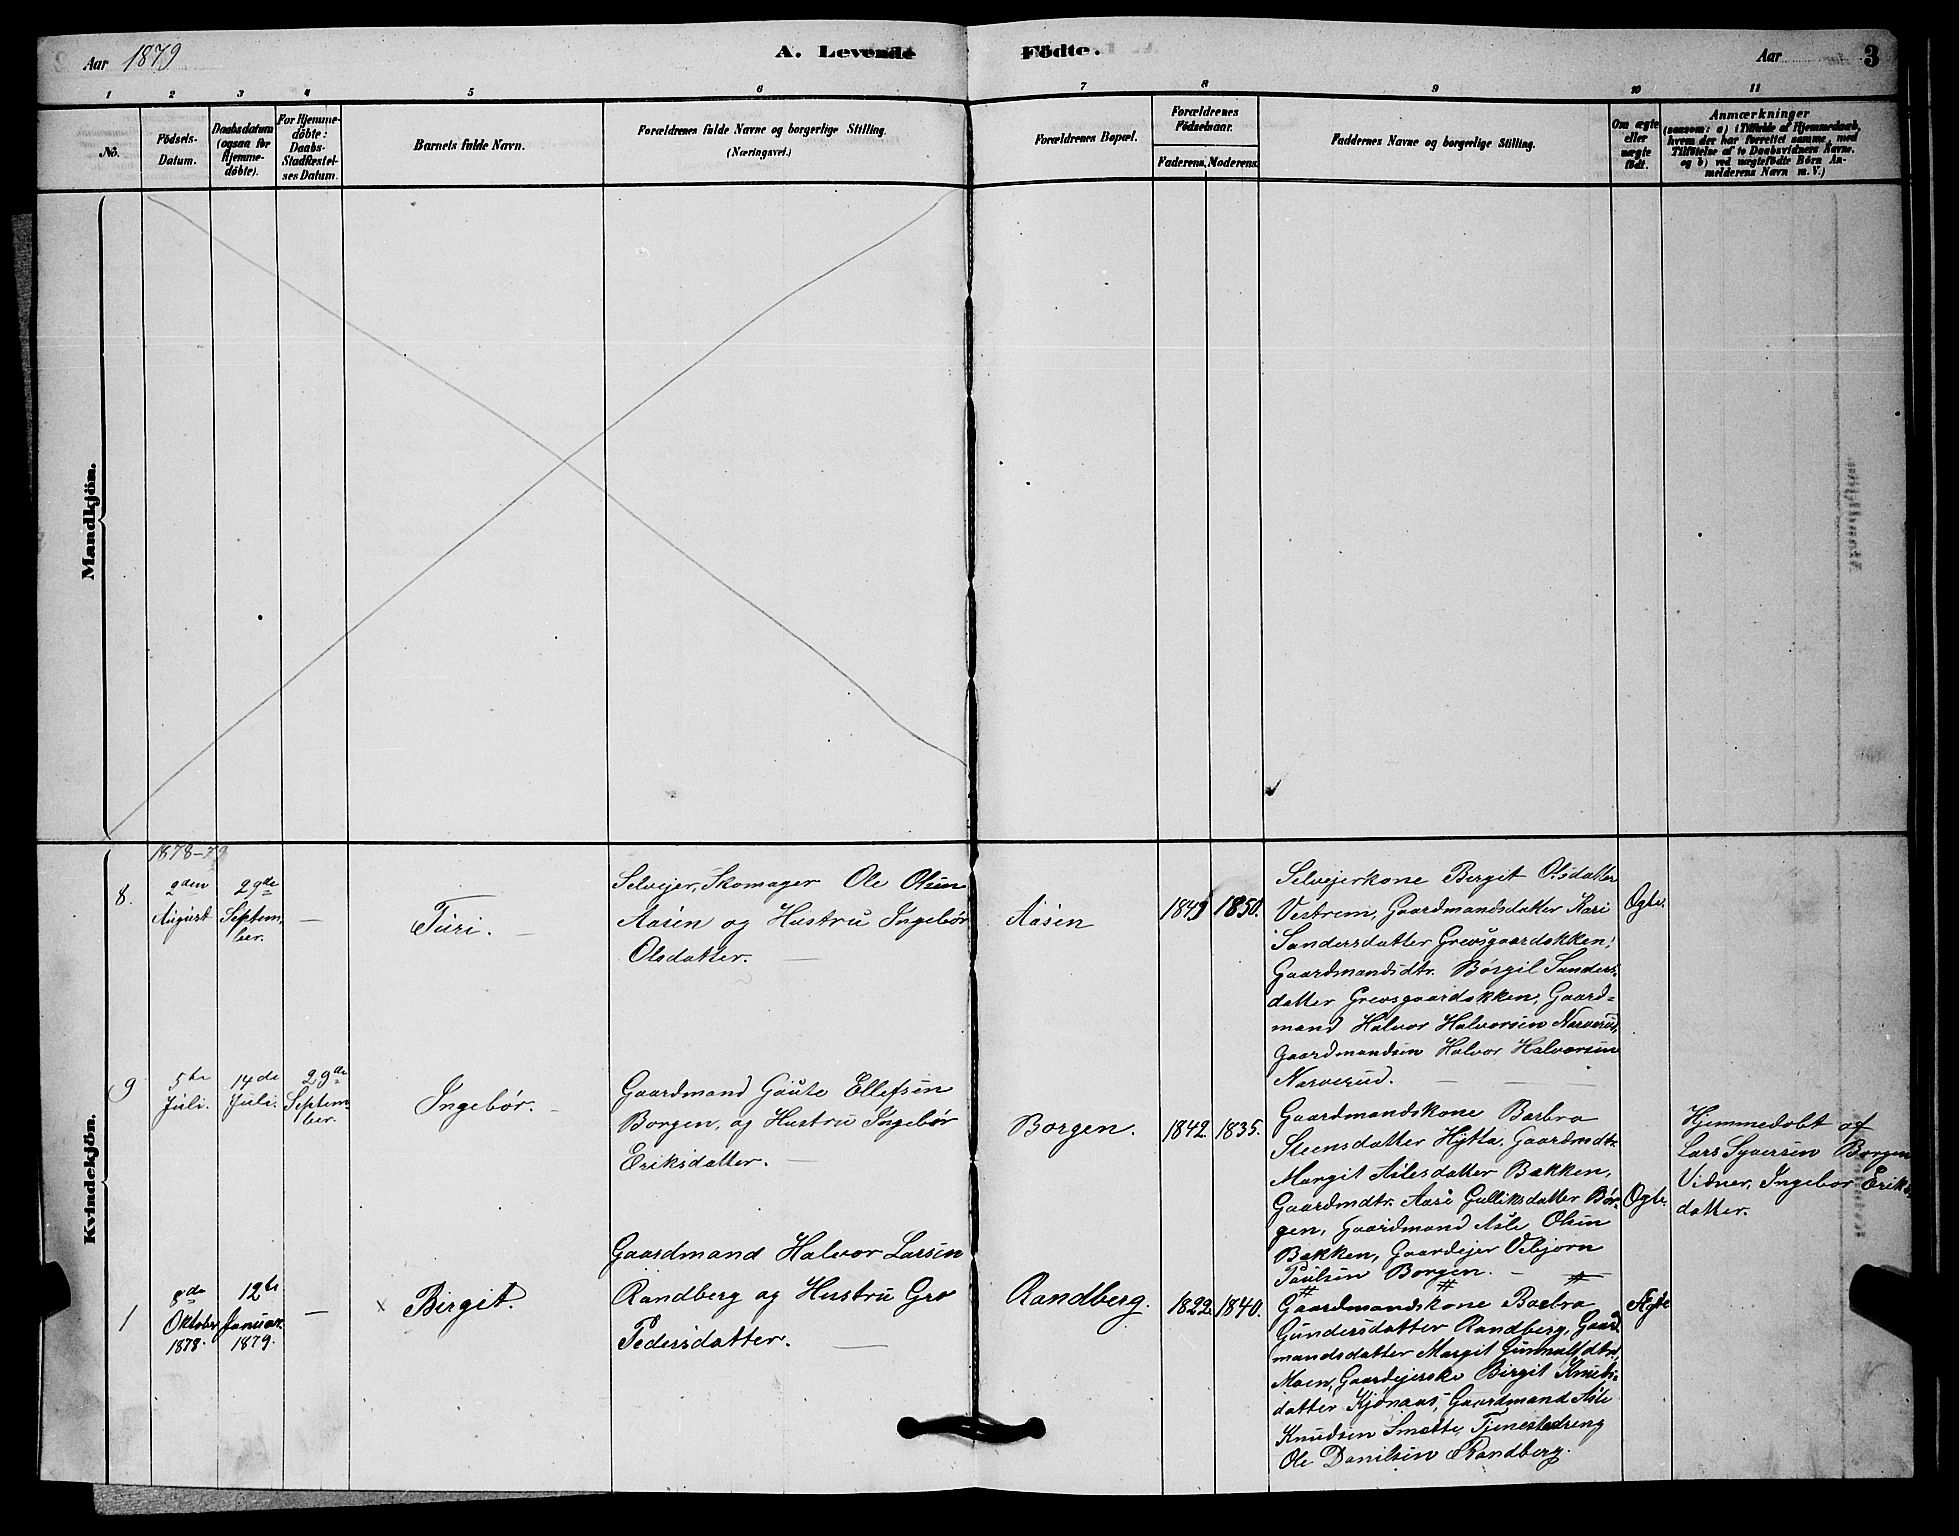 Aar 1879
A. Levende Födte.
Aar
3
1 2 3 4 5 6 7 8 9 10 11
No.
Födsels-
Datum.
Daabsdatum
(ogsaa for
Hjemme-
döbte).
For Hjemme-
döbte:
Daabs-
Stadfestel-
ses Datum.
Barnets fulde Navn.
Forældrenes fulde Navne og borgerlige Stilling.
(Næringsvei.)
Forældrenes Bopæl.
Forældrenes
Födselsaar.
Faderens. Moderens.
Faddernes Navne og borgerlige Stilling.
Om ægte
eller
uægte
födt.
Anmærkninger
(saasom: a) i Tilfælde af Hjemmedaab,
hvem der har forrettet samme, med
Tilföielse af to Daabsvidners Navne,
og b) ved uægtefödte Börn An-
melderens Navn m. V.)
Mandkjön.
Kvindekjön.
1878-79
8.
2den
August
29de
Septem-
ber.
—
Turi.
Selvejer, Skomager Ole Olsen
Aasen og Hustru Ingebør
Olsdatter.
Aasen
1849 1850.
Selvejerkone Birgit Olsdatter
Vestrem, Gaardmandsdatter Kari
Sandersdatter Grevsgaardokken,
Gaardmandsdtr. Børgil Sanders-
datter Grevsgaardokken, Gaard-
mand Halvor Halvorsen Narverud,
Gaardmandsen Halvor Halvorsen
Narverud.
Ægte.
9
5te
Juli.
14de
Juli.
29de
Septem-
ber.
Ingebør.
Gaardmand Gaute Ellefsen
Borgen, og Hustru Ingebør
Eriksdatter.
Borgen.
1842. 1835.
Gaardmandskone Barbra
Steensdatter Hytta, Gaardmdtr.
Margit Aslesdatter Bakken,
Gaardmdtr. Aase Gulliksdatter Bor-
gen, Gaardmand Asle Olsen
Bakken, Gaardejer Vebjørn
Paulsen Borgen.
Ægte.
Hjemmedøbt af
Lars Syversen Borgen
Vidner, Ingebor Eriks-
datter.
1
8de
Oktober
1878.
12te
Januar
1879.
—
× Birgit.
Gaardmand Halvor Larsen
Randberg og Hustru Gro
Pedersdatter.
Randberg.
1822. 1840.
Gaardmandskone Barbra
Gundersdatter Randberg, Gaard-
mandsdatter Margit Gunnulfsdtr.
Moen, Gaardejerske Birgit Knuds-
datter Kjønaas, Gaardmand Asle
Knudsen Smette, Tjenestedreng
Ole Danilsen Randberg.
Ægte